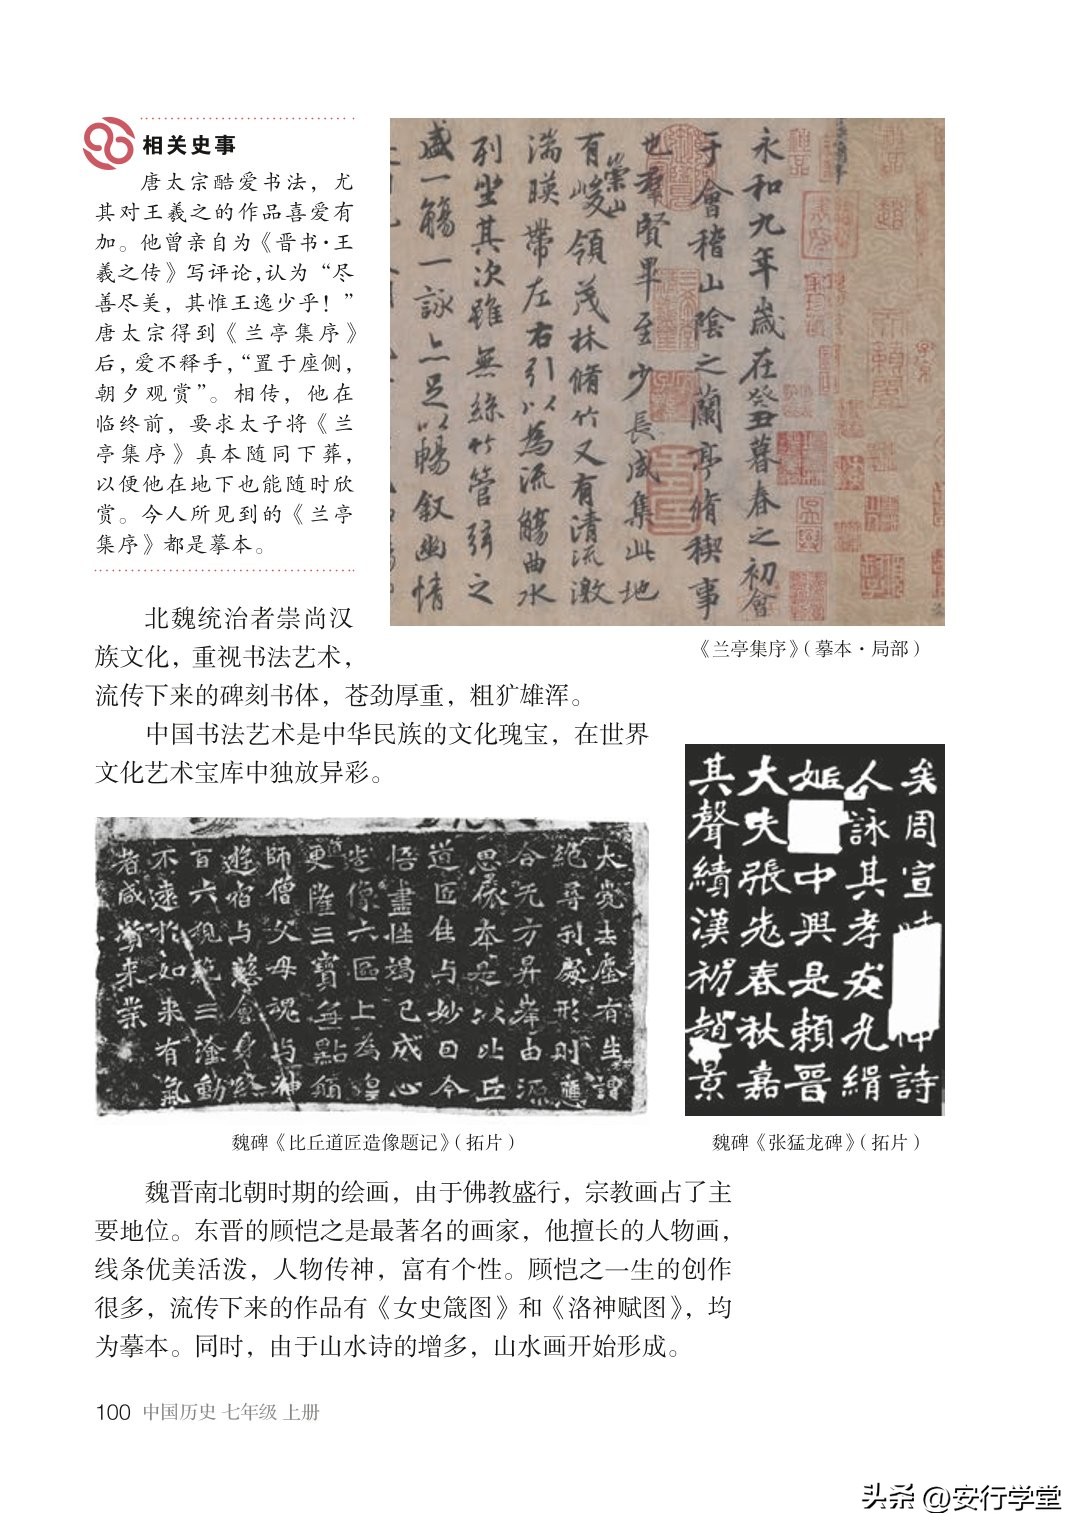 相关史事
唐太宗酷爱书法，尤
其对王羲之的作品喜爱有
加。他曾亲自为《晋书·王
羲之传》写评论，认为“尽
善尽美，其惟王逸少乎！”
唐太宗得到《兰亭集序》
后，爱不释手，“置于座侧，
朝夕观赏”。相传，他在
临终前，要求太子将《兰
亭集序》真本随同下葬，
以便他在地下也能随时欣
赏。今人所见到的《兰亭
集序》都是摹本。
永和九年歲在癸丑暮春之初會
于會稽山陰之蘭亭脩稧事
也羣賢畢至少長咸集此地
有崇山峻領茂林脩竹又有清流激
湍暎帶左右引以為流觴曲水
列坐其次雖無絲竹管弦之
盛一觴一詠亦足以暢敘幽情
《兰亭集序》（摹本·局部）
北魏统治者崇尚汉
族文化，重视书法艺术，
流传下来的碑刻书体，苍劲厚重，粗犷雄浑。
中国书法艺术是中华民族的文化瑰宝，在世界
文化艺术宝库中独放异彩。
大覺去塵有生謂
絕尋刊處形則應
合无方昇峯由源
思展本是以比丘
道匠住与妙日今
悟盡性竭已成心
造像六區上為皇
更隆三寶無點願
師僧父母魂与神
遊宿与慈會身終
百六視範三塗動
不遠於如来有氣
者咸資来業
魏碑《比丘道匠造像题记》（拓片）
矣周宣時
仲詩
人詠其孝友光緝
姬中興是賴晉
大夫張老春秋嘉
其聲績漢初趙景
魏碑《张猛龙碑》（拓片）
魏晋南北朝时期的绘画，由于佛教盛行，宗教画占了主
要地位。东晋的顾恺之是最著名的画家，他擅长的人物画，
线条优美活泼，人物传神，富有个性。顾恺之一生的创作
很多，流传下来的作品有《女史箴图》和《洛神赋图》，均
为摹本。同时，由于山水诗的增多，山水画开始形成。
100 中国历史 七年级 上册
头条 @安行学堂